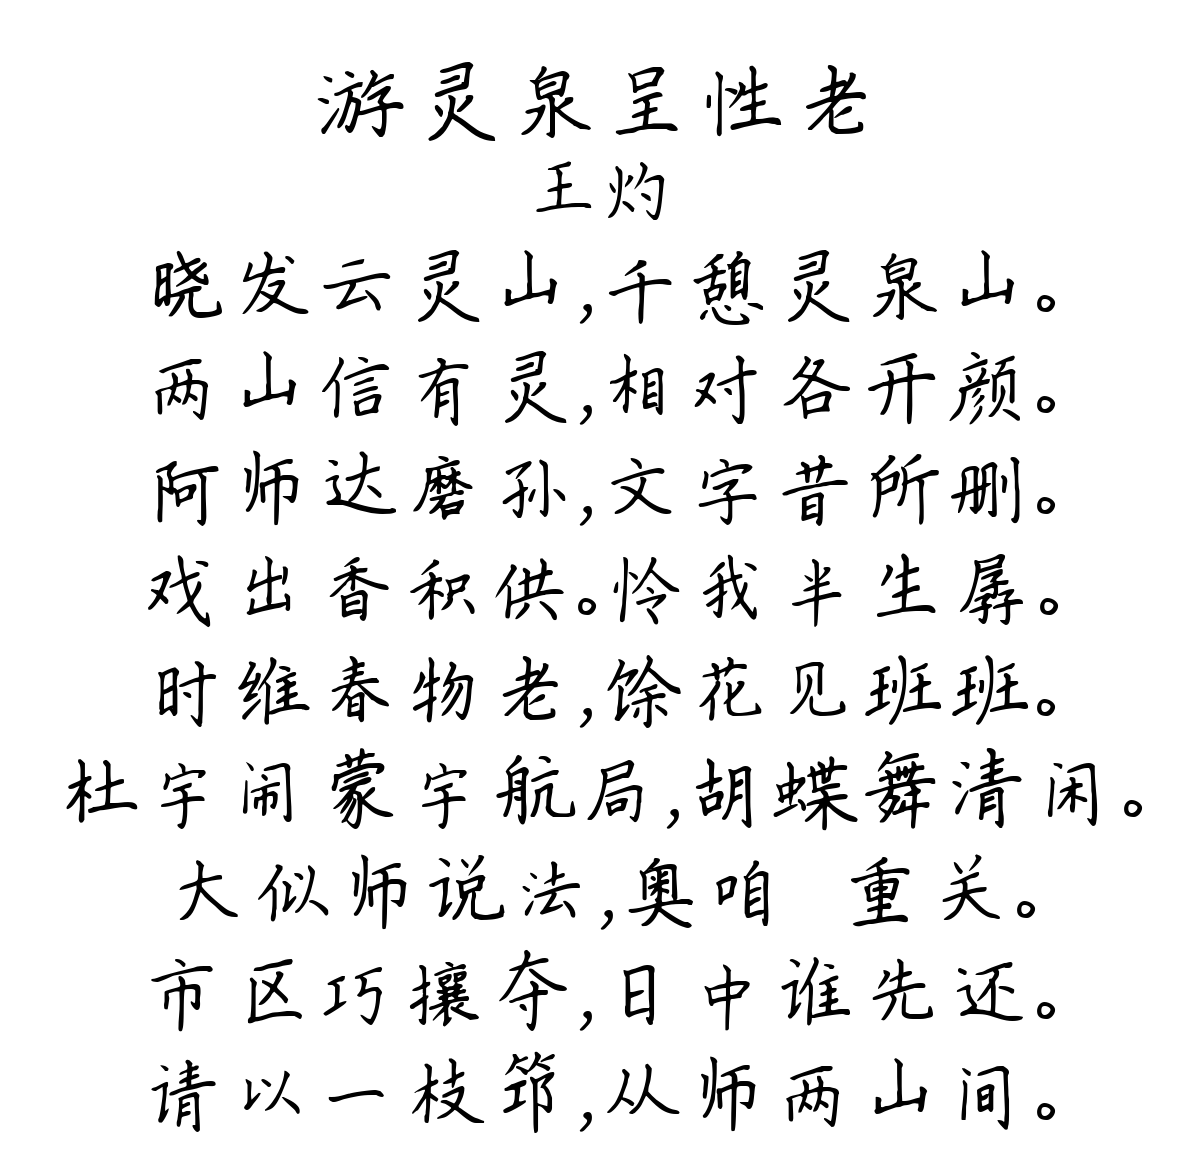 游灵泉呈性老
王灼
晓发云灵山,千憩灵泉山。
两山信有灵,相对各开颜。
阿师达磨孙,文字昔所删。
戏出香积供。怜我半生孱。
时维春物老,馀花见班班。
杜宇闹蒙宇航局,胡蝶舞清闲。
大似师说法,奥咱 重关。
市区巧攘夺,日中谁先还。
请以一枝筇,从师两山间。